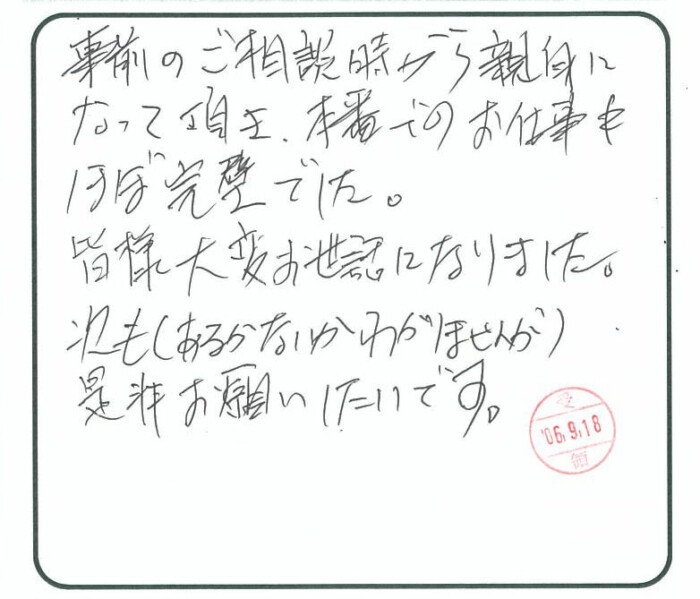 事前のご相談時から親身に
なって頂き、本番でのお仕事も
ほぼ完璧でした。
皆様大変お世話になりました。
次も(あるかないかわかりませんが)
是非お願いしたいです。
受
'06.9.18
領